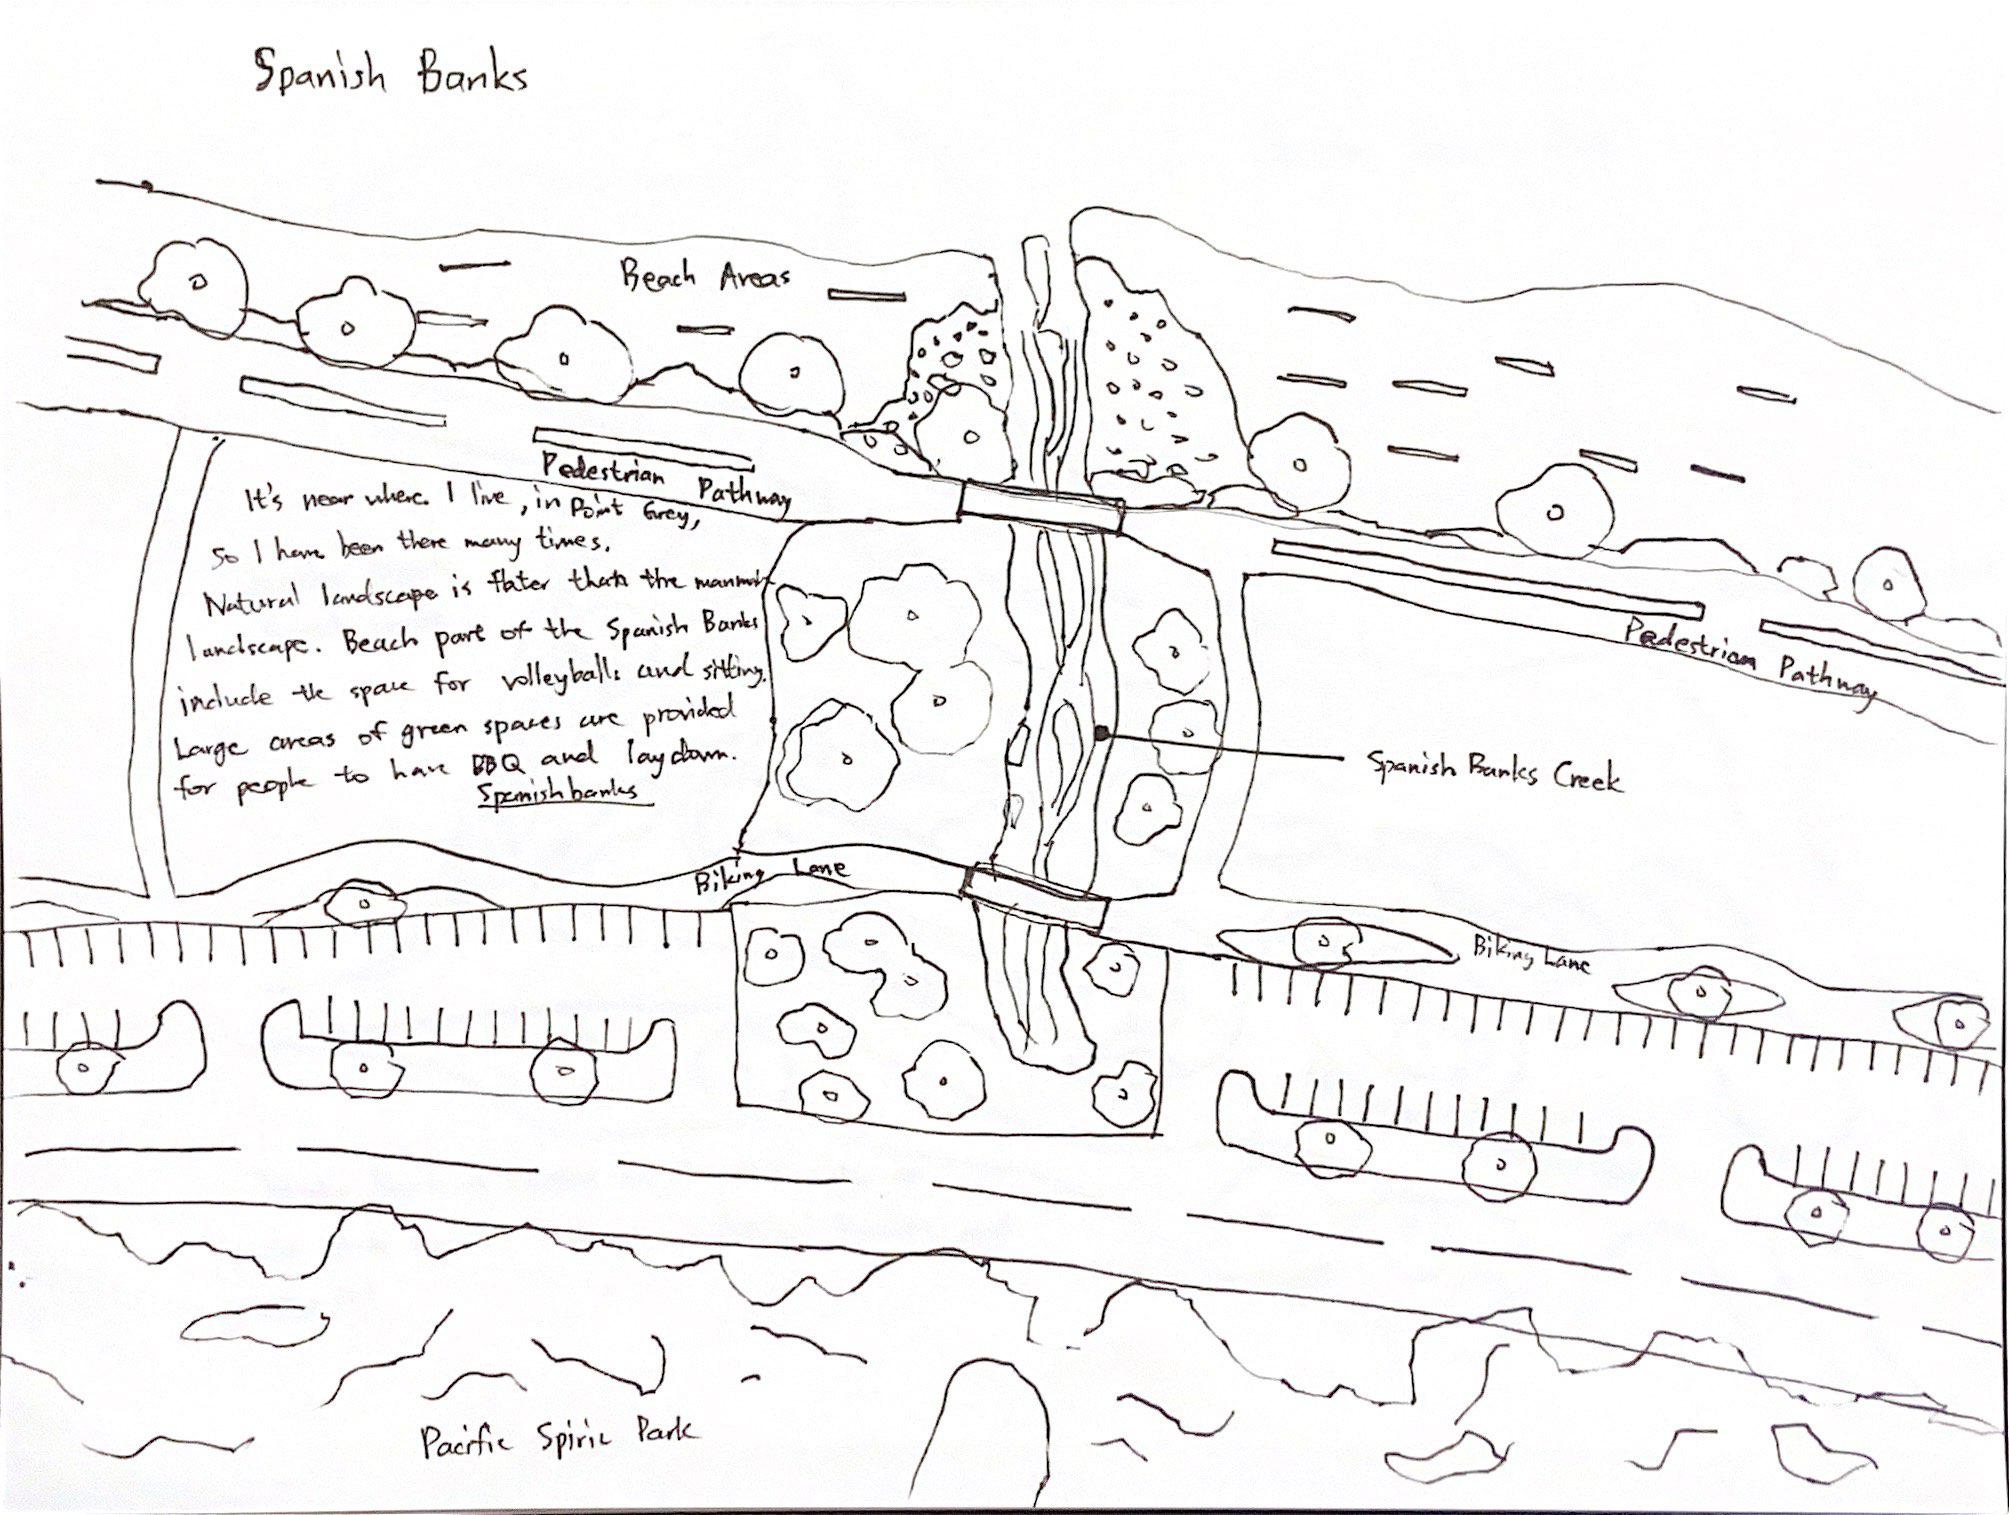 Spanish Banks
Beach Areas
Pedestrian Pathway
It's near where I live, in Point Grey,
so I have been there many times.
Natural landscape is flater than the manmade
landscape. Beach part of the Spanish Banks
include the space for volleyballs and sitting.
Large areas of green spaces are provided
for people to have BBQ and lay down.
Spanishbanks
Pedestrian Pathway
Spanish Banks Creek
Biking Lane
Biking Lane
Pacific Spiric Park